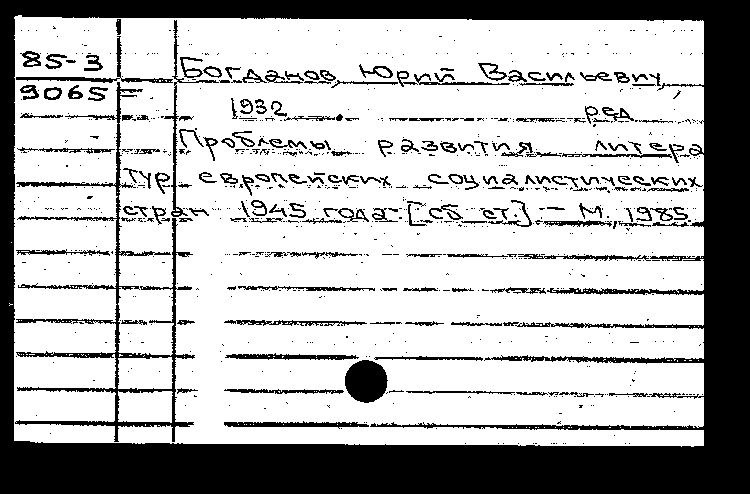 85-3 Богданов, Юрий Васильевич,
9065 =
1932 . ред
Проблемы развития литера
тур европейских социалистических
стран 1945 года- [сб ст.] — М., 1985